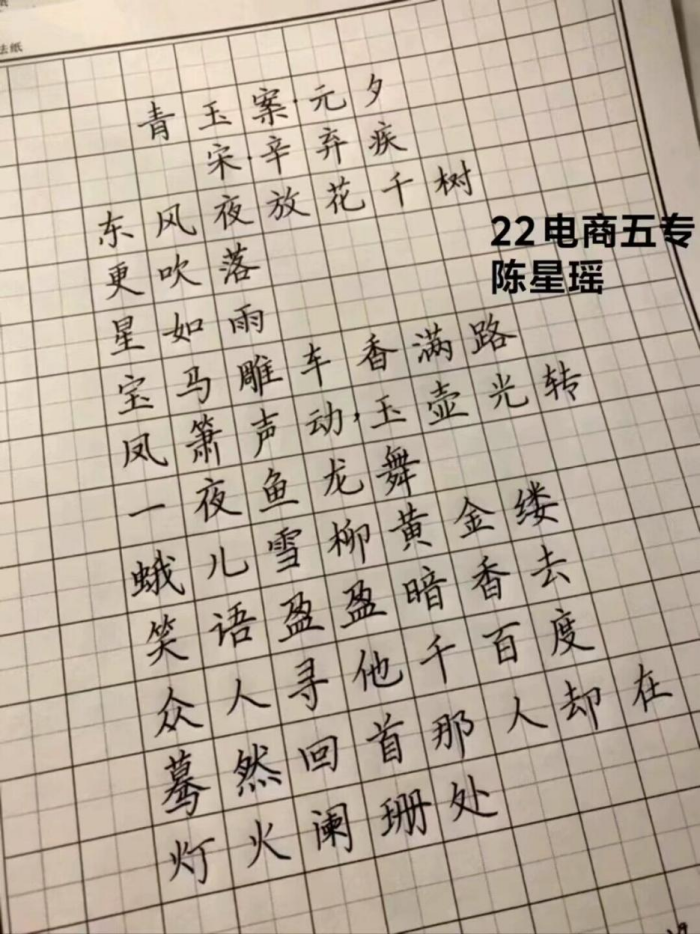 法纸
青玉案·元夕
宋·辛弃疾
东风夜放花千树
更吹落
星如雨
宝马雕车香满路
凤箫声动,玉壶光转
一夜鱼龙舞
蛾儿雪柳黄金缕
笑语盈盈暗香去
众人寻他千百度
蓦然回首那人却在
灯火阑珊处
22电商五专
陈星瑶